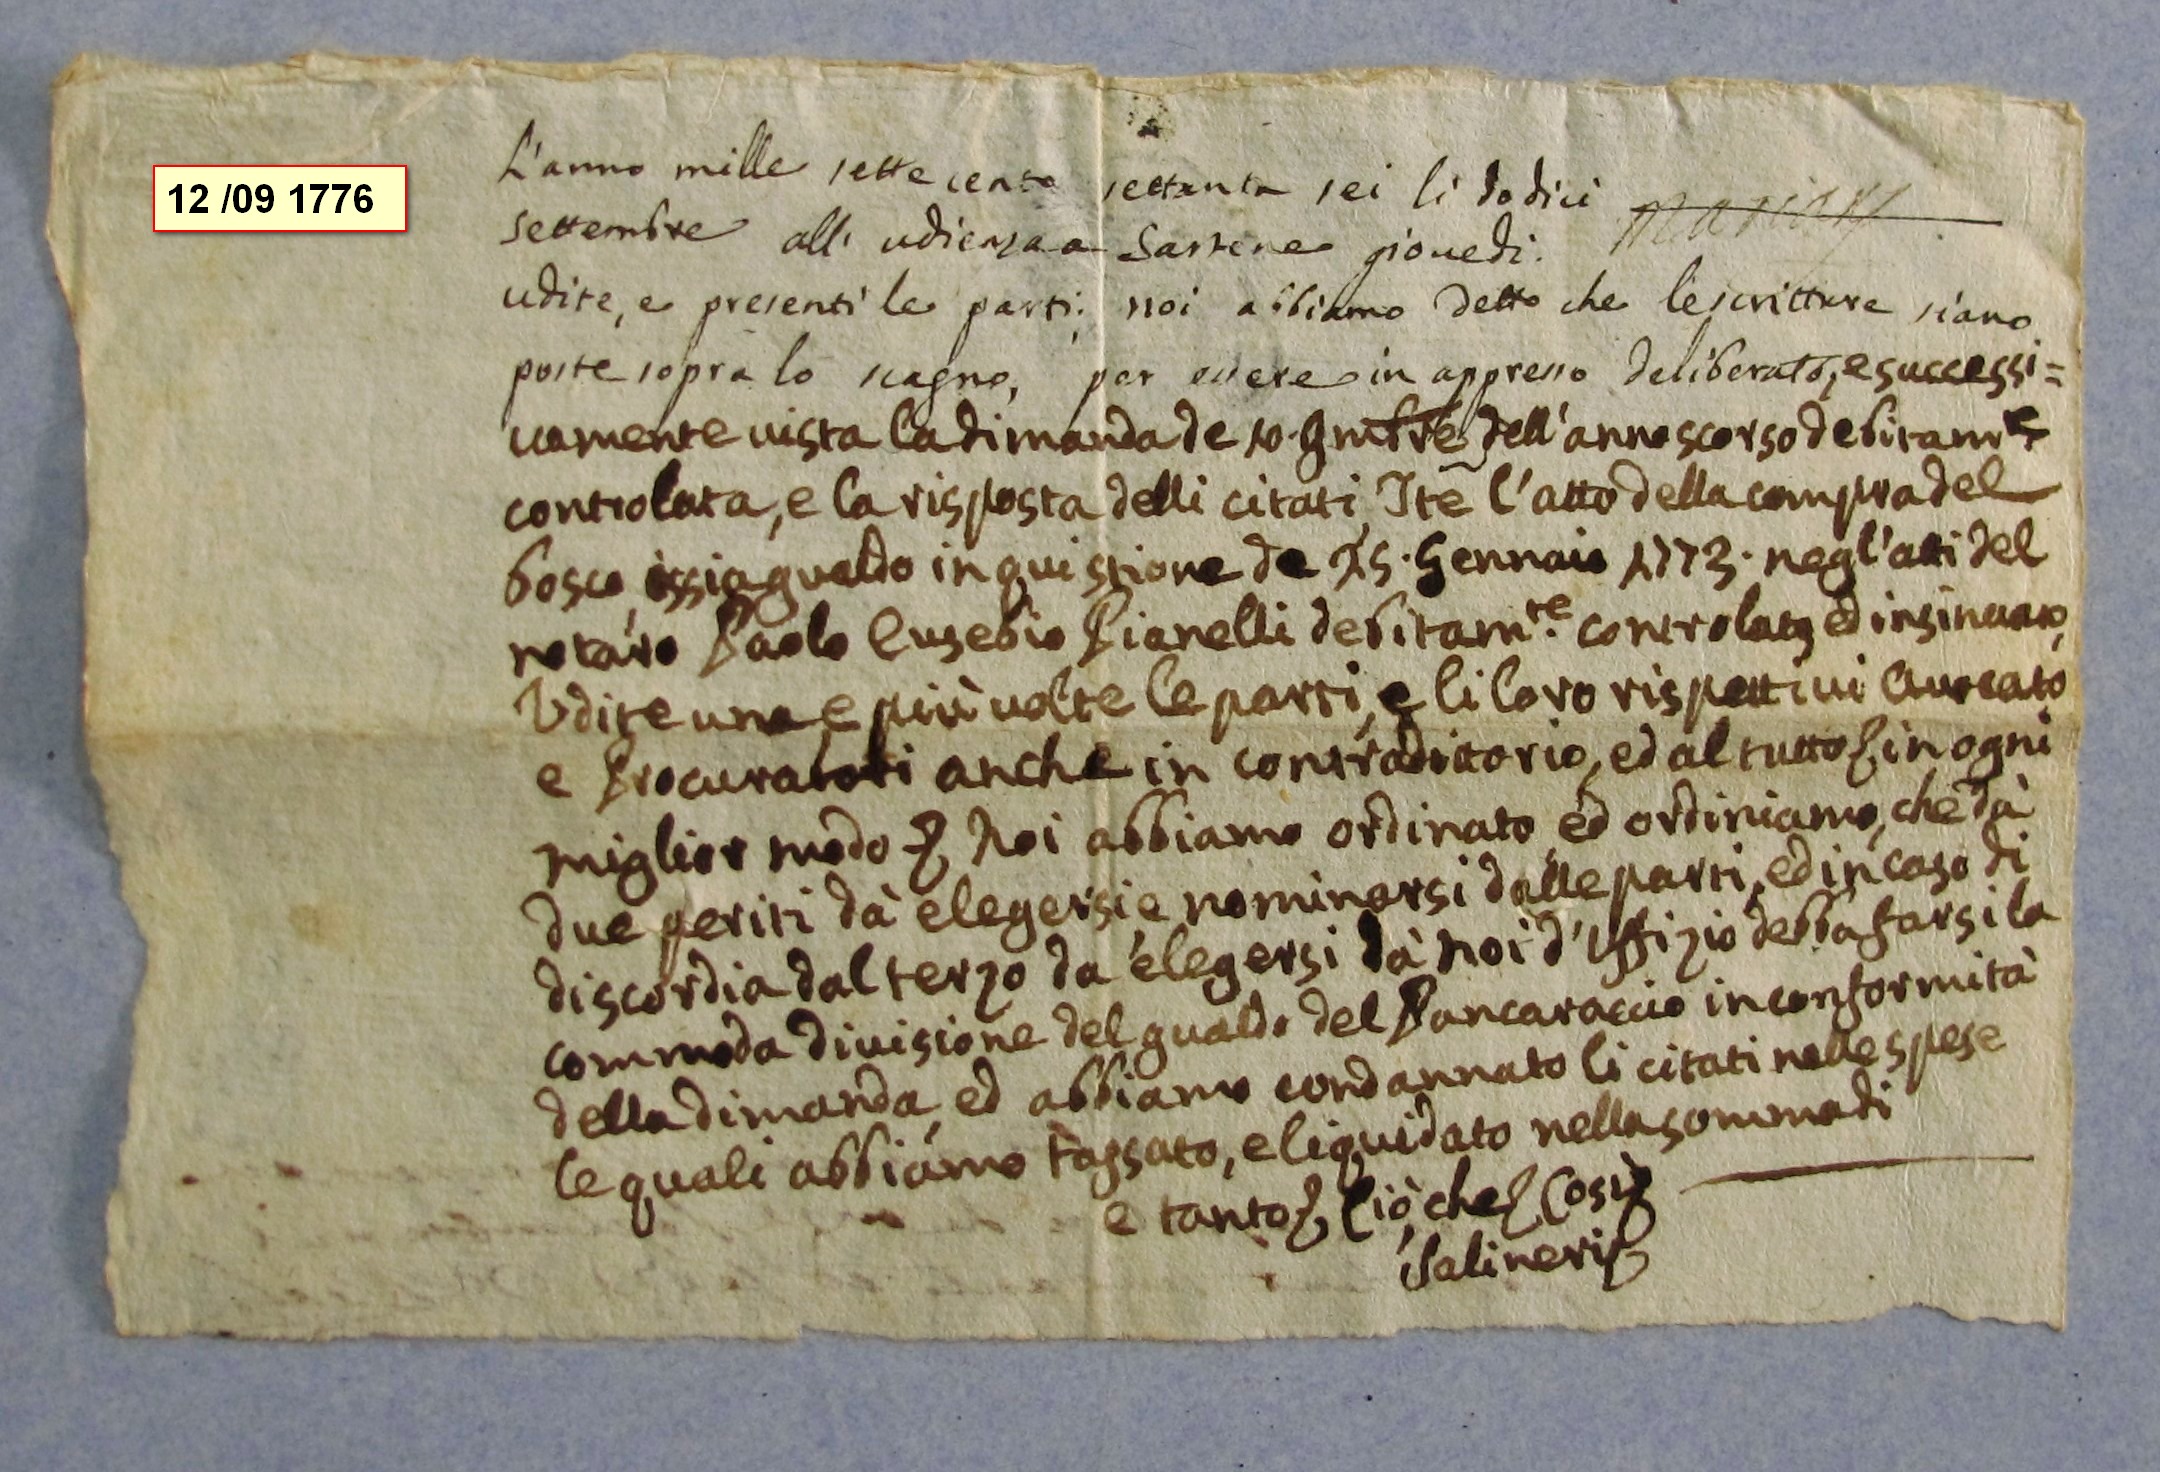 12 /09 1776
L'anno mille sette cento settanta sei li dodici
settembre all' udienza a Sartene giovedi.
udite, e presenti le parti; noi abbiamo detto che le scritture siano
poste sopra lo scagno, per essere in appresso deliberato, e successi=
vamente vista la dimanda de 10. 9mbre dell'anno scorso debitamte
controlata, e la risposta delli citati, Itē l'atto della compra del
bosco, issia gualdo in quistione de 25. Gennaio 1773. negl'atti del
notaro Paolo Eusebio Pianelli debitamte. controlato ed insinuato,
Udite una e più volte le parti, e li loro rispettivi Avocato
e Procuratori anche in contraditorio, ed al tutto in ogni
miglior modo Noi abbiamo ordinato, ed ordiniamo, che dà
due periti dà elegersi, e nominarsi dalle parti, ed in caso di
discordia dal terzo da elegersi dà noi d'Uffizio debba farsi la
commoda divisione del gualdo del Pancaraccio in conformità
della dimanda, ed abbiamo condannato li citati nelle spese
le quali abbiamo tassato, e liquidato nella somma di
e tanto Ciò, che Così
Salineri